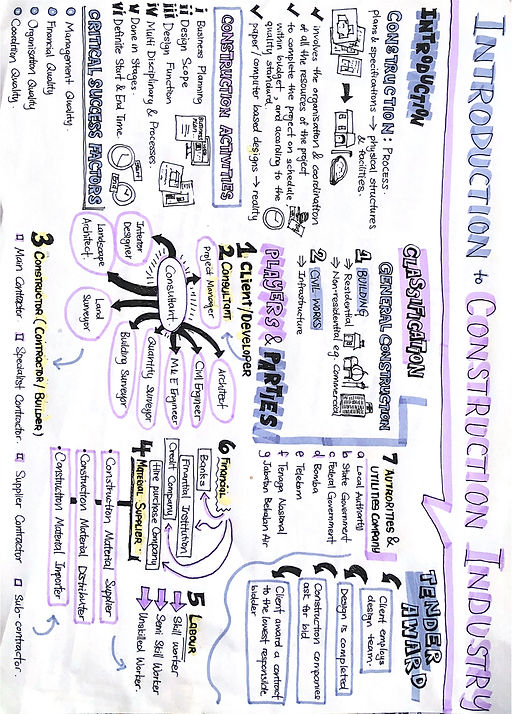 INTRODUCTION to CONSTRUCTION INDUSTRY
INTRODUCTION
CONSTRUCTION: PROCESS.
plans & specifications → physical structures
& facilities.
✓ involves the organisation & coordination
of all the resources of the project
✓ to complete the project on schedule,
within budget, and according to the
quality standard.
✓ paper/computer based designs → reality
CONSTRUCTION ACTIVITIES
i Business Planning
ii Design Scope
iii Design Function
iv Multi Disciplinary & Processes.
v Done in Stages.
vi Definite Start & End Time.
CRITICAL SUCCESS FACTORS
Management Quality.
Financial Quality
Organisation Quality
Condition Quality.
CLASSIFICATION
GENERAL CONSTRUCTION
1 BUILDING
→ Residential
→ Nonresidential e.g. commercial
2 CIVIL WORKS
→ Infrastructure
PLAYERS & PARTIES
1 CLIENT/DEVELOPER
2 CONSULTANT
Consultant.
Project Manager
Architect
Civil Engineer
M & E Engineer
Quantity Surveyor
Building Surveyor
Land
Surveyor
Landscape
Architect.
Interior
Designer
3 CONSTRUCTOR (CONTRACTOR/BUILDER)
Main Contractor
Specialist Contractor
Supplier Contractor
Sub-contractor.
4 MATERIAL SUPPLIER.
• Construction Material Supplier
• Construction Material Distributor
• Construction Material Importer
5 LABOUR
Skill Worker
Semi Skill Worker
Unskilled Worker.
6 FINANCIAL
Banks
Financial Institution
Credit Company
Hire purchase Company
7 AUTHORITIES &
UTILITIES COMPANY
a Local Authority
b State Government
c Federal Government
d Bomba
e Telekom
f Tenaga Nasional
g Jabatan Bekalan Air
TENDER
AWARD
Client employs
design team.
Design is completed
Construction companies
ask for bid
Client award a contract
to the lowest responsible
bidder